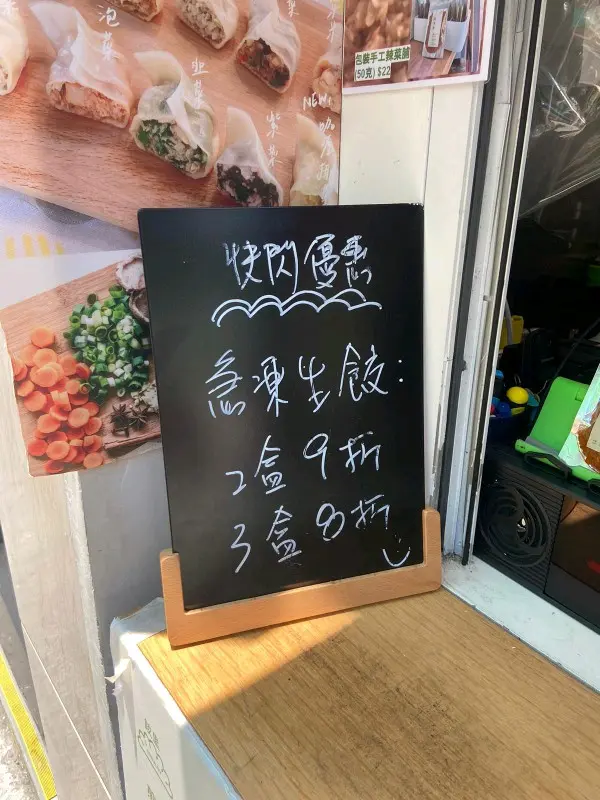 泡菜
韭菜
紫菜
NEW!
咖喱
包裝手工辣菜脯
(50克) $22
快閃優惠
急凍生餃:
2盒 9折
3盒 8折